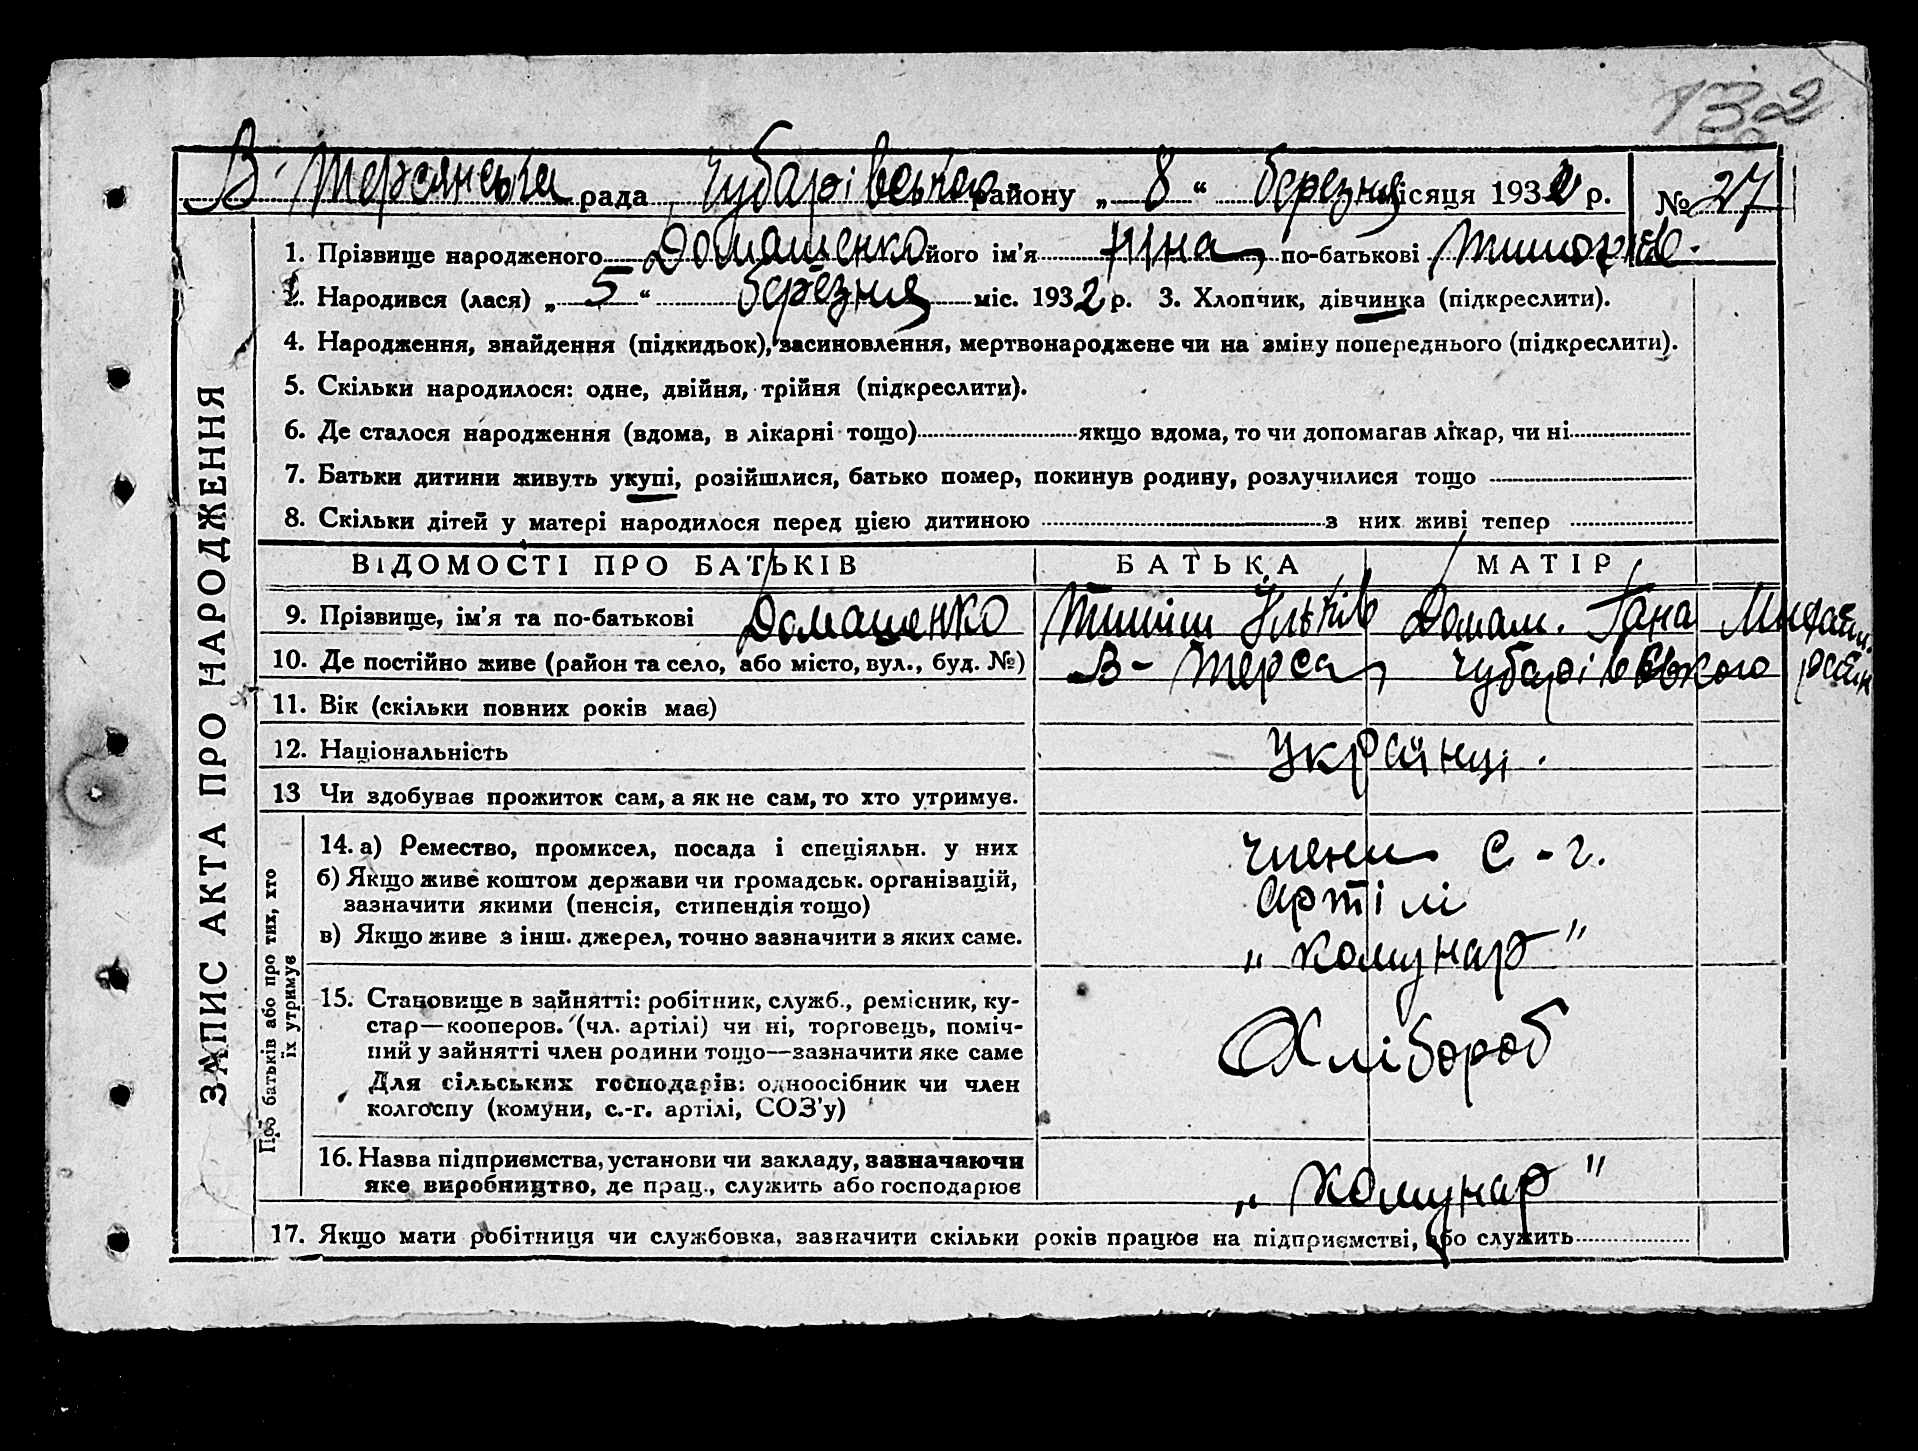 132
В-Терсянська рада Чубарівського району „ 8 “ березня місяця 1932 р. № 27
ЗАПИС АКТА ПРО НАРОДЖЕННЯ
1. Прізвище народженого Домашенко його ім'я Ніна, по-батькові
2. Народився (лася) „ 5 “ березня міс. 1932 р. 3. Хлопчик, дівчинка (підкреслити).
4. Народження, знайдення (підкидьок), засиновлення, мертвонароджене чи на зміну попереднього (підкреслити).
5. Скільки народилося: одне, двійня, трійня (підкреслити).
6. Де сталося народження (вдома, в лікарні тощо) якщо вдома, то чи допомагав лікар, чи ні
7. Батьки дитини живуть укупі, розійшлися, батько помер, покинув родину, розлучилися тощо
8. Скільки дітей у матері народилося перед цією дитиною з них живі тепер
ВІДОМОСТІ ПРО БАТЬКІВ БАТЬКА МАТІР
9. Прізвище, ім'я та по-батькові Домашенко Тиміш Ільків Домаш. Гана
10. Де постійно живе (район та село, або місто, вул., буд. №) В-Терса, Чубарівського район
11. Вік (скільки повних років має)
12. Національність Українці.
13 Чи здобуває прожиток сам, а як не сам, то хто утримує.
Про батьків або про тих, хто
їх утримує
14. а) Ремество, промисел, посада і спеціяльн. у них члени с.-г.
б) Якщо живе коштом держави чи громадськ. організацій, артілі
зазначити якими (пенсія, стипендія тощо)
в) Якщо живе з інш. джерел, точно зазначити з яких саме. „Комунар"
15. Становище в зайнятті: робітник, служб., ремісник, ку-
стар—кооперов. (чл. артілі) чи ні, торговець, поміч-
ний у зайнятті член родини тощо—зазначити яке саме Хлібороб
Для сільських господарів: одноосібник чи член
колгоспу (комуни, с.-г. артілі, СОЗ'у)
16. Назва підприємства, установи чи закладу, зазначаючи
яке виробництво, де прац., служить або господарює „Комунар"
17. Якщо мати робітниця чи службовка, зазначити скільки років працює на підприємстві, або служить